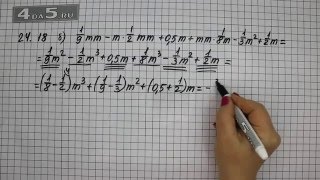 4DA5.RU
24.18 б) 1/9 mm - m · 1/2 mm + 0,5m + mm · 1/8 m - 1/3 m² + 1/2 m =
= 1/9 m² - 1/2 m³ + 0,5m + 1/8 m³ - 1/3 m² + 1/2 m =
= (1/8 - 1/2 \4) m³ + (1/9 - 1/3) m² + (0,5 + 1/2) m = -